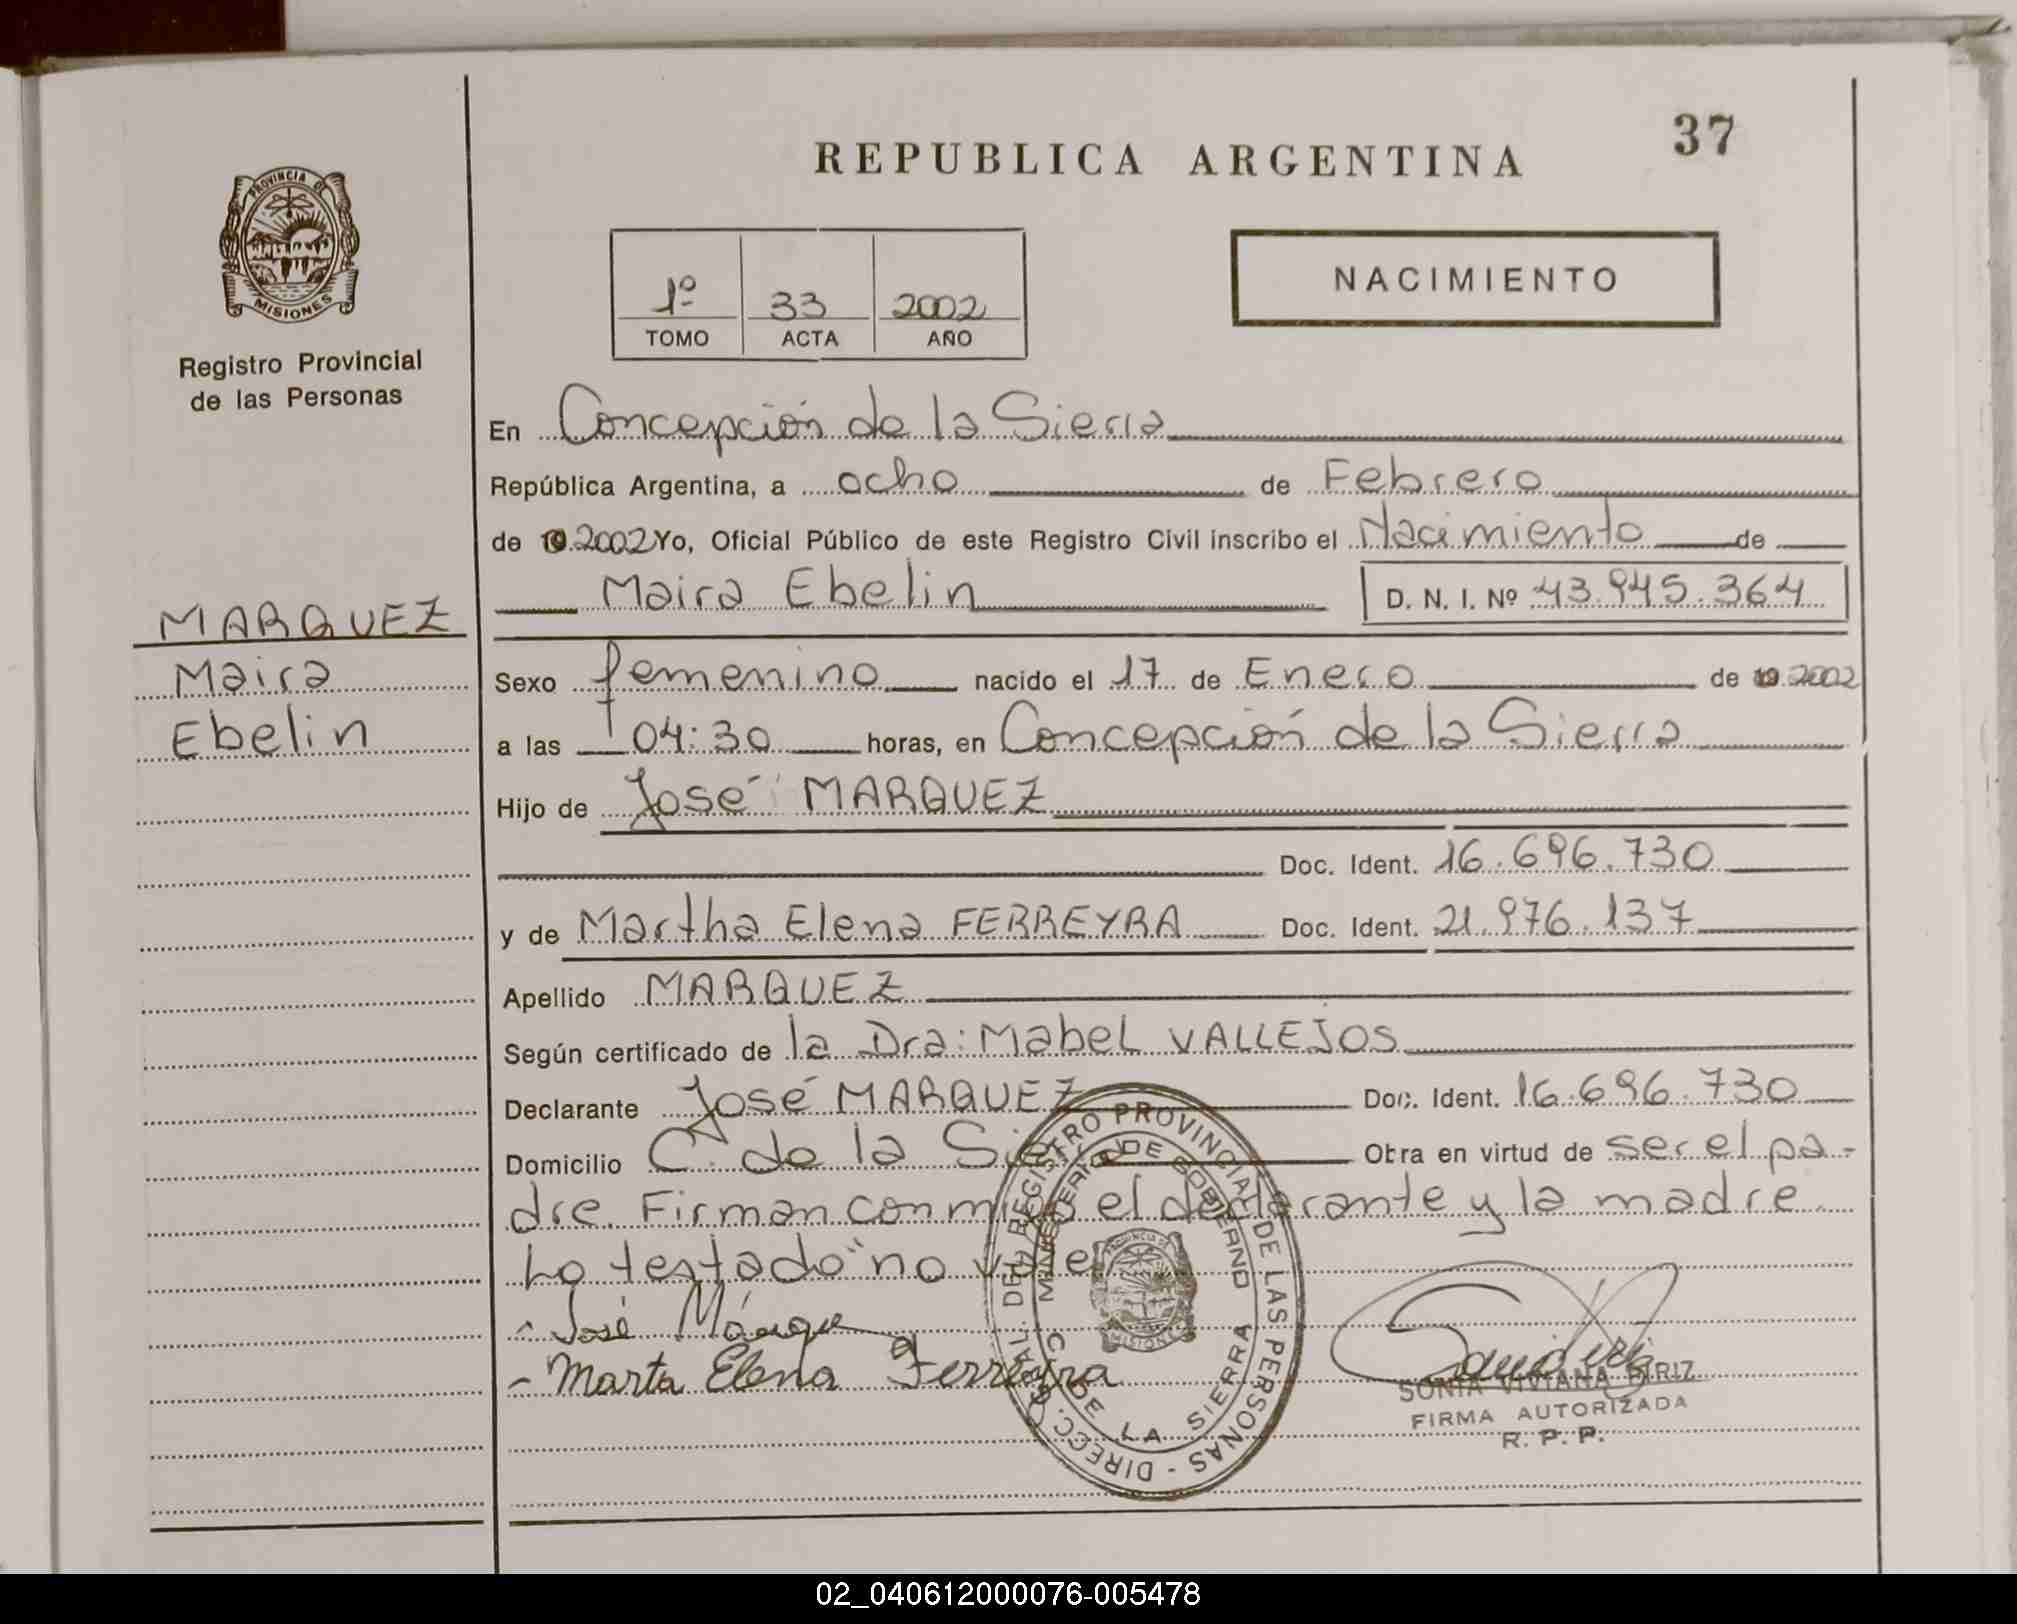 37
REPUBLICA ARGENTINA
PROVINCIA DE
MISIONES
Registro Provincial
de las Personas
1º 33 2002
TOMO ACTA AÑO
NACIMIENTO
MARQUEZ
Maira
Ebelin
En Concepción de la Sierra
República Argentina, a ocho de Febrero
de 19 2002 Yo, Oficial Público de este Registro Civil inscribo el Nacimiento de
Maira Ebelin D. N. I. Nº 43.945.364
Sexo femenino nacido el 17 de Enero de 19 2002
a las 04:30 horas, en Concepción de la Sierra
Hijo de José MARQUEZ
Doc. Ident. 16.696.730
y de Martha Elena FERREYRA Doc. Ident. 21.976.137
Apellido MARQUEZ
Según certificado de la Dra: Mabel VALLEJOS
Declarante José MARQUEZ Doc. Ident. 16.696.730
Domicilio C. de la Sierra Obra en virtud de ser el pa-
dre. Firman conmigo el declarante y la madre.
Lo testado "no vale
- José Márque
- Marta Elena Ferreyra
DIRECC. GRAL. DEL REGISTRO PROVINCIAL DE LAS PERSONAS
MINISTERIO DE GOBIERNO
C. DE LA SIERRA
PROVINCIA DE
MISIONES
SONIA VIVIANA
FIRMA AUTORIZADA
R. P. P.
02_040612000076-005478